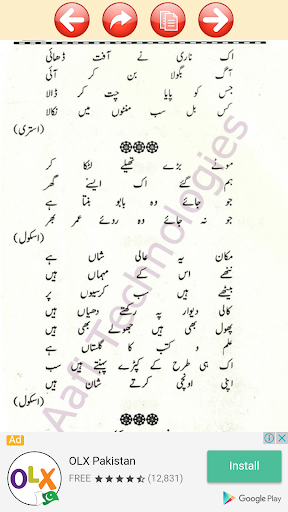 اک ناری نے آفت ڈھائی
آگ بگولا بن کر آئی
جس کو پایا چت کر ڈالا
کس بل سب منٹوں میں نکالا
(استری)
موٹے بڑے تھیلے لٹکا کر
ہم گئے اک ایسے گھر
جو جائے وہ بابو بنتا ہے
جو نہ جائے وہ روئے عمر بھر
(اسکول)
مکان یہ عالی شاں ہے
ننھے اس کے مہماں ہیں
بیٹھے ہیں سب کرسیوں پر
کالی دیوار پہ رکھتے دھیاں ہیں
پھول بھی ہیں جھولے بھی ہیں
علم و کتب کا گلستاں ہے
اک ہی طرح کے کپڑے پہنتے ہیں سب
اپنی اونچی کرتے شان ہیں
(اسکول)
Aafi Technologies
Ad
OLX Pakistan
FREE ★★★★★ (12,831)
Install
OLX
Google Play